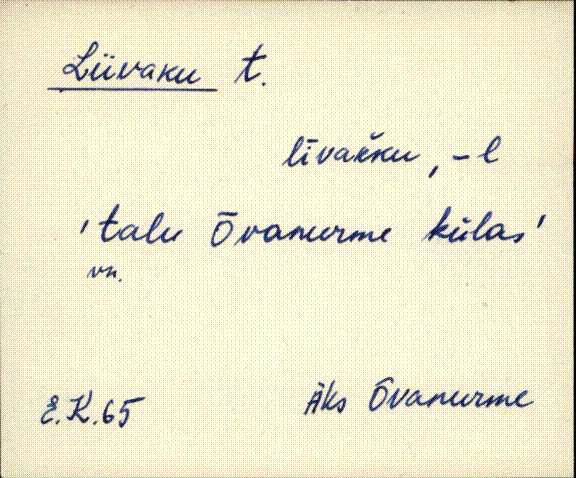 Liivaku t.
līvakku, -l
'talu Õvanurme külas'
vn.
E.K.65 Äks Õvanurme